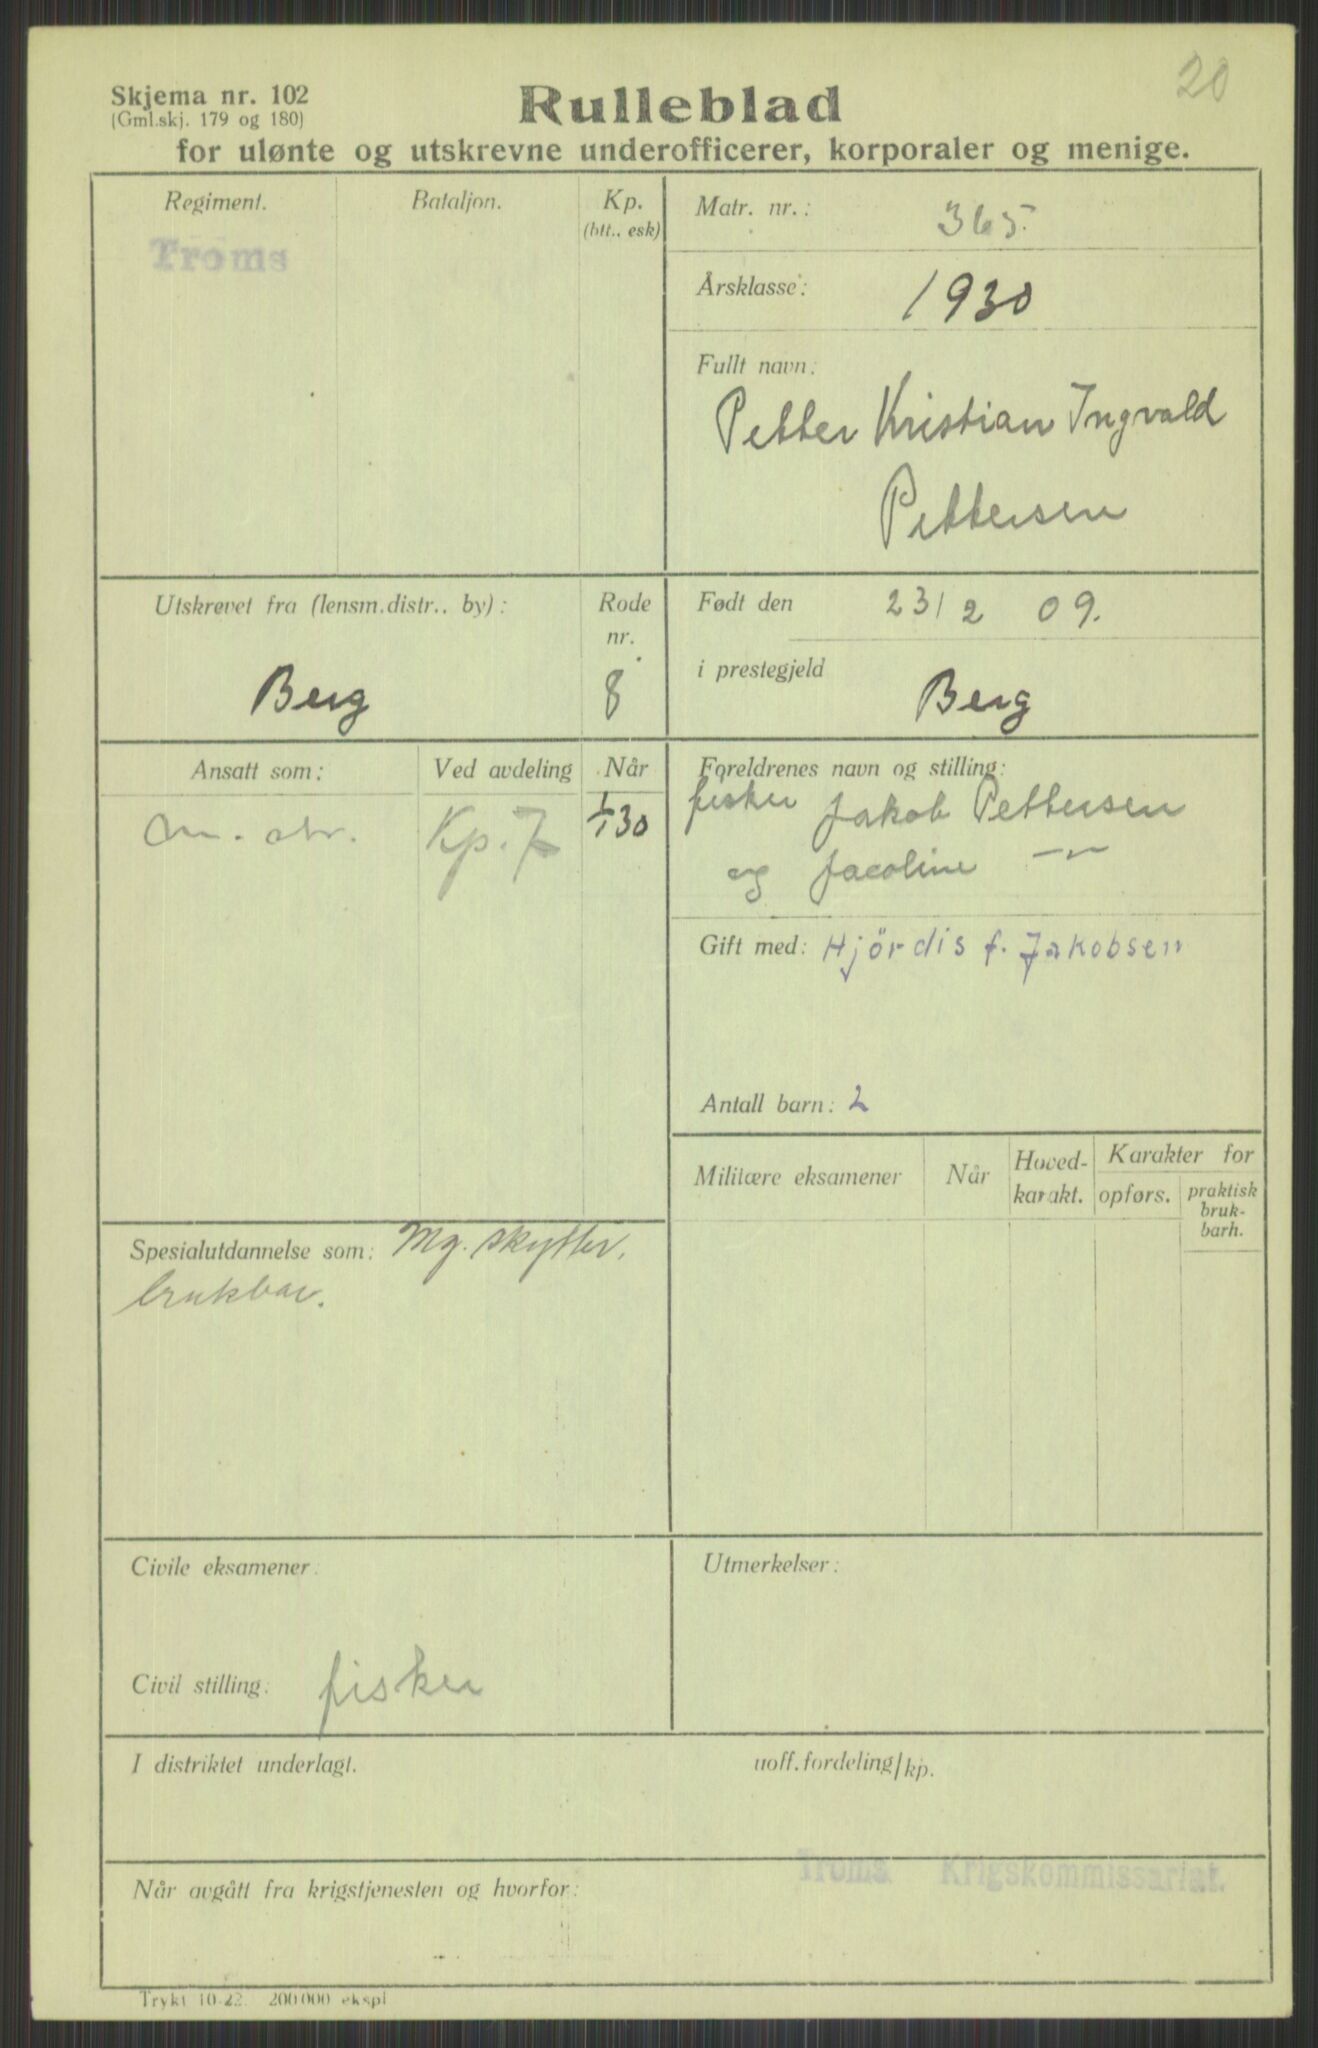 20
Skjema nr. 102
(Gml.skj. 179 og 180)
Rulleblad
for ulønte og utskrevne underofficerer, korporaler og menige.
Regiment. Bataljon. Kp.
(btt., esk)
Troms
Matr. nr.: 365.
Årsklasse: 1930
Fullt navn:
Petter Kristian Ingvald
Pettersen
Utskrevet fra (lensm.distr., by): Rode
nr.
Berg 8
Født den 23/2 09.
i prestegjeld
Berg
Ansatt som: Ved avdeling Når
Kp. 7 1/1 30
Foreldrenes navn og stilling:
fisker Jakob Pettersen
og Jacoline —"—
Gift med: Hjördis f. Jakobsen
Antall barn: 2
Militære eksamener Når Hoved-
karakt. Karakter for
opførs. praktisk
bruk-
barh.
Spesialutdannelse som: Mg. skytter.
brukbar.
Civile eksamener:
Utmerkelser:
Civil stilling: fisker
I distriktet underlagt. uoff. fordeling/kp.
Troms Krigskommissariat.
Når avgått fra krigstjenesten og hvorfor:
Trykt 10-22. 200000 ekspl